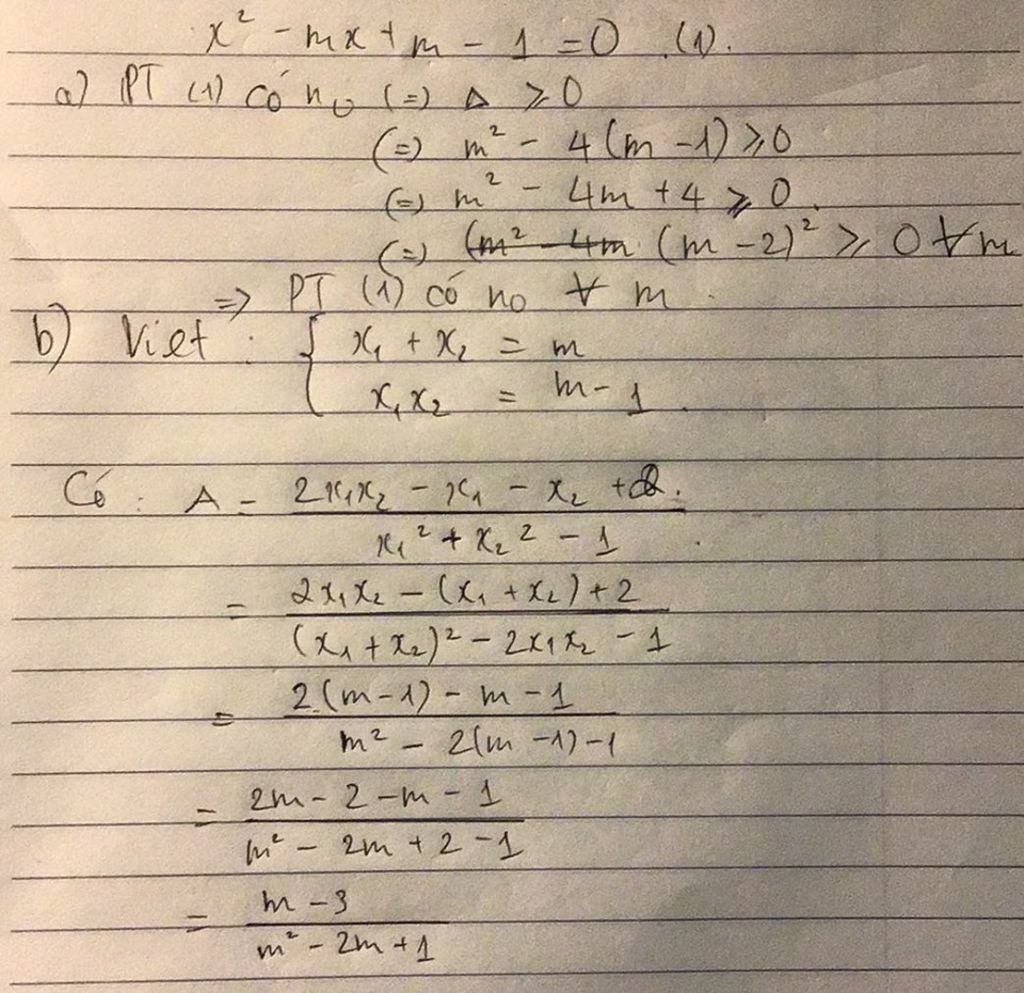 x² - mx + m - 1 = 0 (1).
a) PT (1) có no (=) Δ ≥ 0
(=) m² - 4(m - 1) ≥ 0
(=) m² - 4m + 4 ≥ 0.
(=) (m² - 4m (m - 2)² ≥ 0 ∀m
=> PT (1) có no ∀ m.
b) Viet : { x₁ + x₂ = m
x₁x₂ = m - 1.
Có : A = (2x₁x₂ - x₁ - x₂ + 2.)/(x₁² + x₂² - 1)
= (2x₁x₂ - (x₁ + x₂) + 2)/((x₁ + x₂)² - 2x₁x₂ - 1)
= (2(m - 1) - m - 1)/(m² - 2(m - 1) - 1)
= (2m - 2 - m - 1)/(m² - 2m + 2 - 1)
= (m - 3)/(m² - 2m + 1)